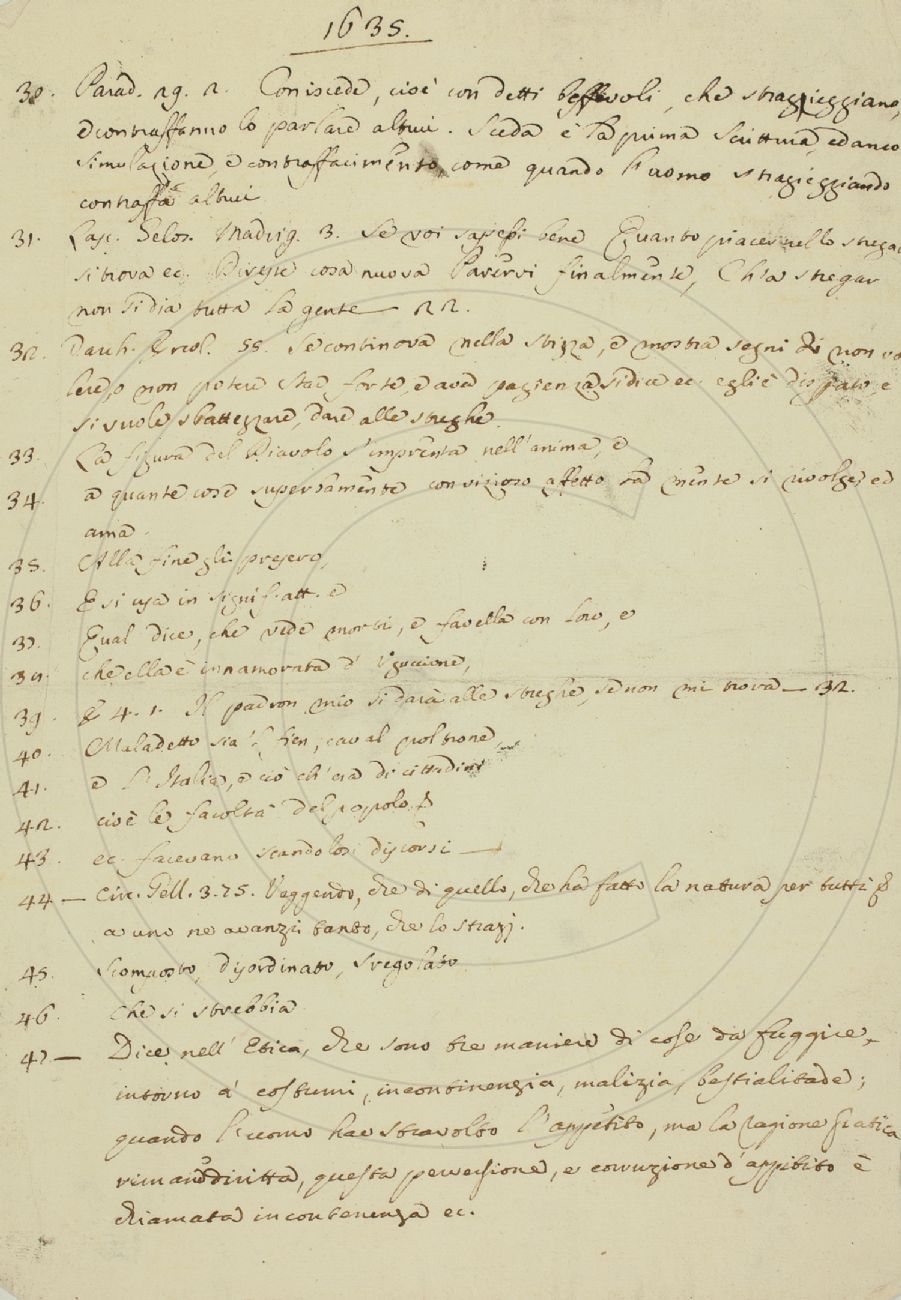 1635.
30. Parad. 29. 2. Con iscede, cioè con detti beffevoli, che strazieggiano,
e contraffanno lo parlare altrui. Sceda è la prima scrittura, ed anco
simulazione, e contraffacimento, come quando l'uomo strazieggiando
contraffà altrui
31. Gelos. Madrig. 3. Se voi sapessi bene Quanto piacer nello
si trova ec. cosa nuova Parervi finalmente, Ch'a stregar
non si dia tutta la gente — 22.
32. Varch. Ercol. 55. Se continova nella stizza, e mostra segni di non vo
lere, o non potere star forte, e aver pazienza si dice ec. egli è e
si vuole sbattezzare, dare alle streghe.
33. La figura del Diavolo s'imprenta nell'anima, e
34. a quante cose superbamente con vizioso affetto la mente si rivolge, ed
ama.
35. Alla fine gli presero,
36. E si usa in signif. att. e
37. Qual dice, che vede morti, e favella con loro, e
38. che ella è innamorata d' Uguccione,
39. E 4. 1. Il padron mio si darà alle streghe, se non mi trova — 32.
40. Maladetto sia 'l fren, caval poltrone
41. e l'Italia, e ciò ch'era di cittadini
42. cioè le facoltà del popolo,
43. ec. facevano scandolosi discorsi —
44 — Circ. Gell. 3. 75. Veggendo, che di quello, che ha fatto la nattura per tutti
a uno ne avanzi tanto, che lo strazj.
45. scomposto, disordinato, sregolato
46. che si strebbia
47 — Dice nell' Etica, che sono tre maniere di cose da fuggire,
intorno a' costumi, incontinenzia, malizia, bestialitade;
quando l'uomo hae stravolto l'appetito, ma la ragione pratica
rimane diritta, questa perversione, e corruzione d'appitito è
chiamata incontenenza ec.